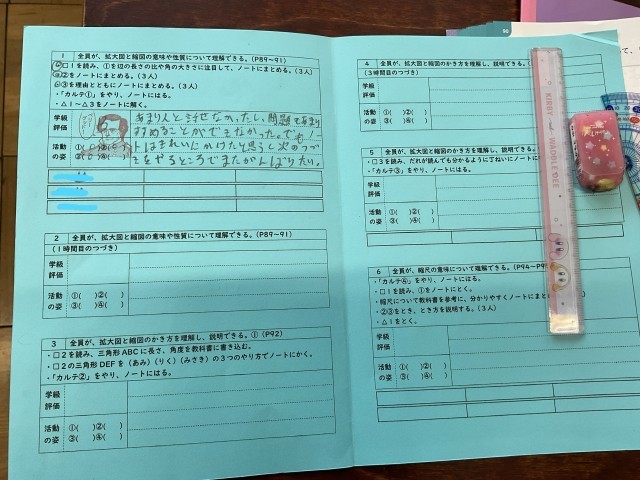 1 全員が、拡大図と縮図の意味や性質について理解できる。(P89~91)
□1を読み、①を辺の長さの比や角の大きさに注目して、ノートにまとめる。(3人)
②をノートにまとめる。(3人)
③を理由とともにノートにまとめる。(3人)
・「カルテ①」をやり、ノートにはる。
・△1~△3をノートに解く。
学級評価
あまり人と話せなかったし、問題もあまり
すすめることができなかった。でも、ノー
トはきれいにかけたと思うし次のつづ
きをやるところでまたがんばりたい。
活動の姿
①( )②( )
③( )④( )
2 全員が、拡大図と縮図の意味や性質について理解できる。(P89~91)
(1時間目のつづき)
学級評価
活動の姿
①( )②( )
③( )④( )
3 全員が、拡大図と縮図のかき方を理解し、説明できる。①(P92)
・□2を読み、三角形ABCに長さ、角度を教科書に書き込む。
・□2の三角形DEFを(あみ)(りく)(みさき)の3つのやり方でノートにかく。
・「カルテ②」をやり、ノートにはる。
学級評価
活動の姿
①( )②( )
③( )④( )
4 全員が、拡大図と縮図のかき方を理解し、説明
(3時間目のつづき)
学級評価
活動の姿
①( )②( )
③( )④( )
5 全員が、拡大図と縮図のかき方を理解し、説明できる。
・□3を読み、だれが読んでも分かるように丁ねいにノート
・「カルテ③」をやり、ノートにはる。
学級評価
活動の姿
①( )②( )
③( )④( )
6 全員が、縮尺の意味について理解できる。(P94~P9
・「カルテ④」をやり、ノートにはる。
・□1を読み、①をノートにとく。
・縮尺について教科書を参考に、分かりやすくノートにまと
・②③をとき、とき方を説明する。(3人)
・△1をとく。
学級評価
活動の姿
①( )②( )
③( )④( )
KIRBY WADDLE DEE